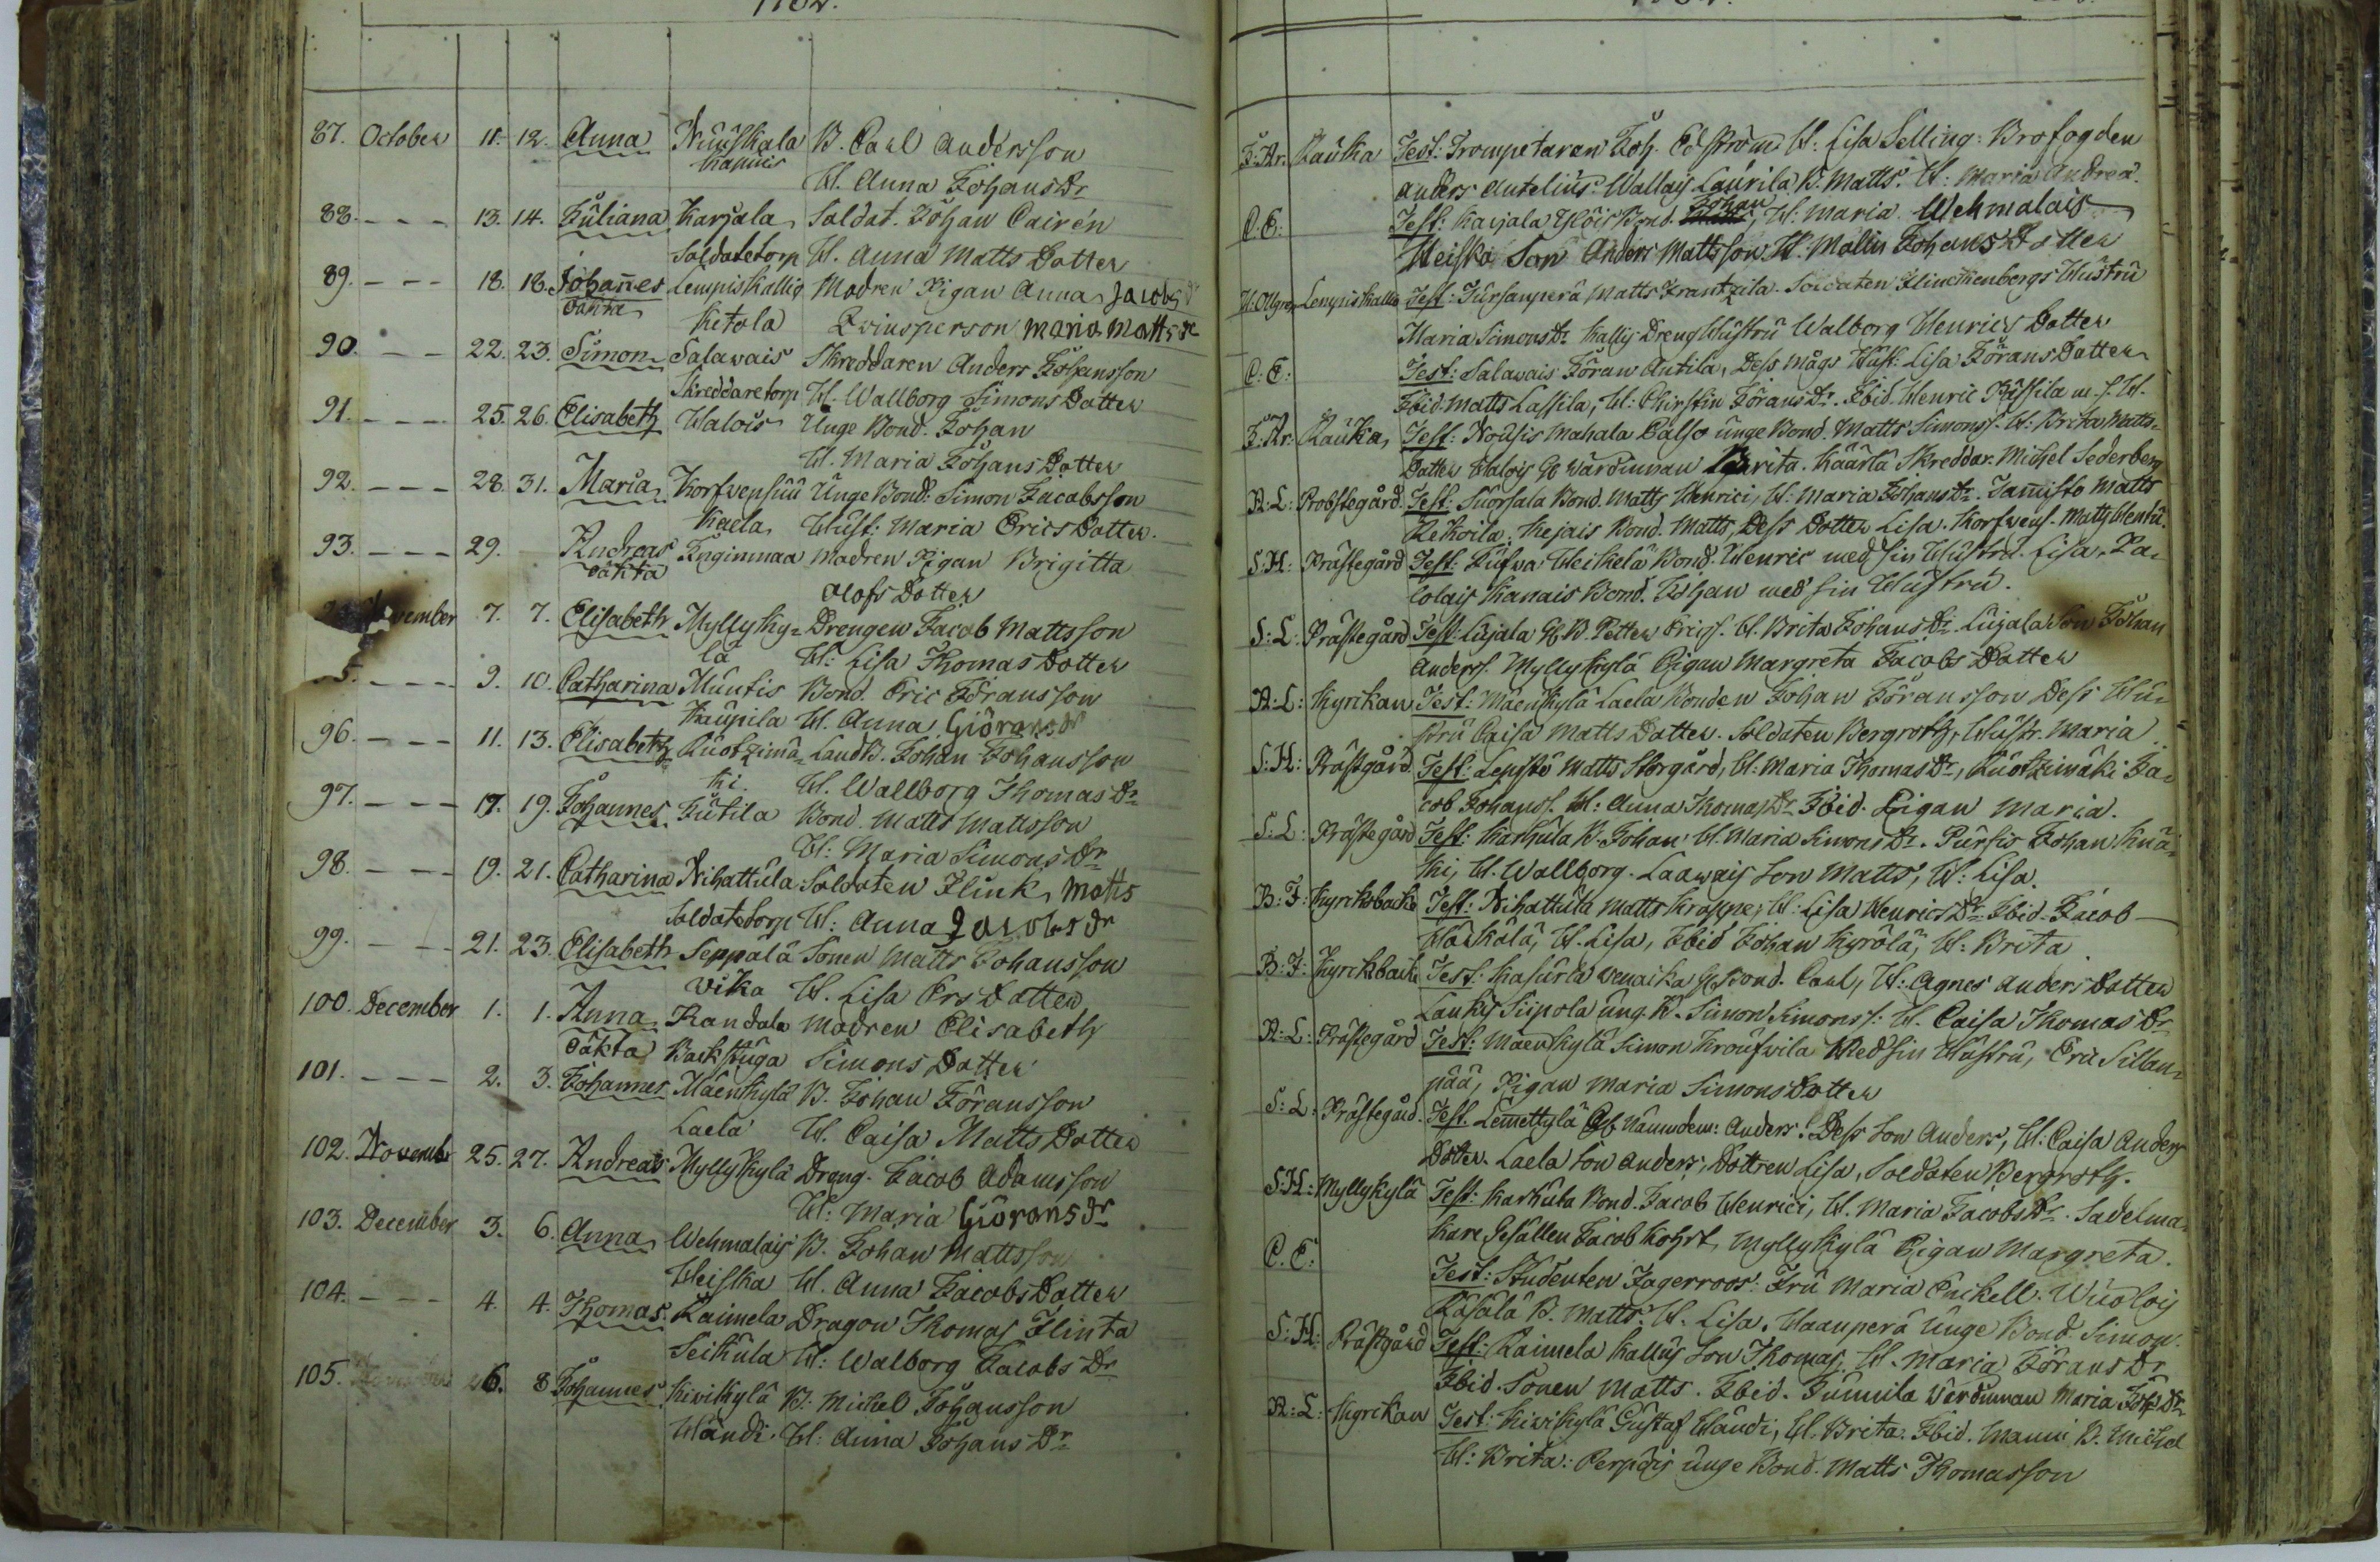 87. October 11. 12. Anna Niuskala B. Carl Andersson
Hannis H. Anna JohansDr
88. - - - 13. 14. Juliana Karjala Soldat. Johan Cairén
Soldatetorp H. Anna Matts Dotter
89. - - - 18. 18. Johannes Lempis Kallio Modren Pigan Anna Jacobs
oäkta Ketola Qwinsperson Maria Mattsdr
90. - - 22. 23. Simon Salawais Skreddaren Anders Johansson
Skreddaretorp H. Wallborg Simons Dotter
91. - - - 25. 26. Elisabeth Walois Unge Bond. Johan
H. Maria Johans Dotter
92. - - - 28. 31. Maria Korfwensuu Unge Bond: Simon Jacobsson
Kaela Hust: Maria Erics Dotter.
93. - - - 29. Andreas Inginmaa Modren Pigan Brigitta
oäkta Olofs Dotter
vember 7. 7. Elisabeth Myllyky= Drengen Jacob Mattsson
lä H: Lisa Thomas Dotter
5. - - - 9. 10. Catharina Muntis Bond. Eric Göransson
Kaupila H. Anna Giöransdr
96. - - - 11. 13. Elisabeth Ruotzimä= LandB. Johan Johansson
ki. H. Wallborg Thomas Dr
97. - - - 17. 19. Johannes Jutila Bond. Matts Mattsson
H: Maria Simons Dr
98. - - - 19. 21. Catharina Nihattula Soldaten Flink, Matts
Soldatetorp H: Anna Jacobsdr
99. - - - 21. 23. Elisabeth Seppälä Sonen Matts Johansson
Vika H. Lisa Ers Dotter
100. December 1. 1. Anna Randala Modren Elisabeth
oäkta Backstuga Simons Dotter
101. - - - 2. 3. Johannes Mäenkylä B. Johan Göransson
Laela H. Caisa Matts Dotter
102. November 25. 27. Andreas Myllykylä Dreng. Jacob Adamsson
H: Maria Giöransdr
103. December 3. 6. Anna Wehmalais B. Johan Mattsson
Heiska H. Anna Jacobs Dotter
104. - - - 4. 4. Thomas Raimela Dragon Thomas Flinta
Seikula H: Walborg Jacobs Dr
105. 6. 8 Johannes Kiwikylä B: Michel Johansson
Handi. H: Anna Johans Dr
J: Ar. Rauka Test: Trompetaren Joh. Edström H: Lisa Selling: Brofogden
Anders Antelius. Wallais Laurila B. Matts. H: Maria Andrea.
C. E: Test: Karjala Bond. Johan, H: Maria Wehmalais
Heiska Son Anders Mattsson H: Malin Johans Dotter
Lempis Kallio Test: Matts Frantzila. Soldaten Hustru
Maria Simons Dr Kallis Dreng Hustru Walborg Henrics Dotter
C: E: Test: Salawais Göran Antila, Dess Mågs Hust: Lisa Görans Dotter
Ibid. Matts Lassila, H: Chirstin Görans Dr. Ibid. Henric m. s. H.
J: Ar: Rauka, Test: Nousis Mahala unge Bond. Matts Simonss. H: Brita Matts-
Dotter Walois wärdinnan Brita. Käärlä Skreddar. Michel Sederberg
A: L: Probstegård. Test: Suorsala Bond. Matts Henrici, H: Maria Johans Dr. Matts
Kekoila. Kejais Bond. Matts, Dess Dotter Lisa. Korfwens.
S: H: Prästegård Test: Heikelä Bond. Henric med sin Hustru. Lisa, Pa-
lolais Kanais Bond. Johan med sin Hustru.
S: L: Prästegård Test: Lujala B. Petter Ericss. H. Brita Johans Dr. Lujala Son Johan
Anderss. Myllykylä Pigan Margreta Jacobs Dotter
A: L: Kyrckan Test: Mäenkylä Laela Bonden Johan Göransson Dess Hu-
stru Caisa Matts Dotter. Soldaten Bergroth, Hustr. Maria
S: H: Prästgård Test: Lepistö Matts Storgård, H: Maria Thomas Dr, Ruotzimäki Ja-
cob Johanss. H: Anna Thomas Dr Ibid. Pigan Maria.
S: L: Prästegård Test: Karkula B. Johan H. Maria Simons Dr. Pursis Johan Knä-
ki, H. Wallborg. Laawais Son Matts, H: Lisa.
B: F: Kyrckbacke Test: Nihattula Matts Krappe, H: Lisa Henrics Dr Ibid Jacob
H. Lisa, Ibid Johan Kyrölä, H: Brita
B: F: Kyrckbacke Test: Kasurla Bond. Carl, H: Agnes Anders Dotter
Laukis Siipola ung. B. Simon Simonss: H. Caisa Thomas Dr
A: L: Prästegård Test: Mäenkylä Simon Kroufwila Med sin Hustru, Eric Sillan-
pää, Pigan Maria Simons Dotter
S: L: Prästegård. Test. Lemettylä Nämndem: Anders. Dess Son Anders, H: Caisa Anders
Dotter. Laela Son Anders, Dottren Lisa, Soldaten Bergroth.
S: H: Myllykylä Test: Karkula Bond. Jacob Henrici, H. Maria Jacobs Dr. Sadelma-
kare Gesällen Jacob Kohrt, Myllykylä Pigan Margreta.
C. E: Test: Studenten Jagerroos. Fru Maria Enckell. Wuolois
Kåsälä B. Matts. H. Lisa. Haanperä Unge Bond. Simon.
S: H: Prästgård Test: Raimela Kallus Son Thomas. H. Maria Görans Dr
Ibid. Sonen Matts. Ibid. Junnila Värdinnan Maria Joh: Dr
A: L: Kyrckan Test: Kiwikylä Gustaf Handi, H. Brita. Ibid. Manni B. Michel
H: Brita: unge Bond. Matts Thomasson